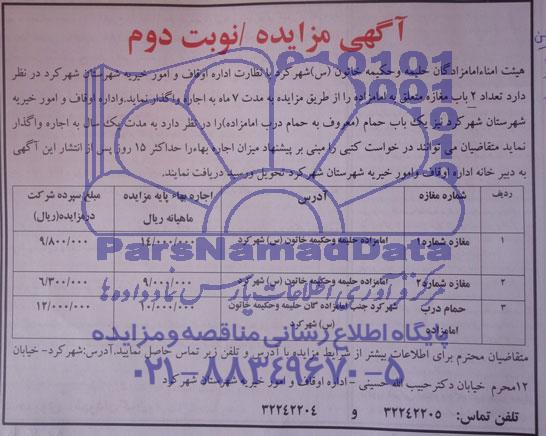 آگهی مزایده /نوبت دوم
هیئت امناءامامزادگان حلیمه وحکیمه خاتون (س)شهرکرد با نظارت اداره اوقاف و امور خیریه شهرستان شهرکرد در نظر
دارد تعداد ۲ باب مغازه متعلق به امامزاده را از طریق مزایده به مدت ۷ ماه به اجاره واگذار نماید.واداره اوقاف و امور خیریه
شهرستان شهرکرد نیز یک باب حمام (معروف به حمام درب امامزاده)را در نظر دارد به مدت یک سال به اجاره واگذار
نماید متقاضیان می توانند در خواست کتبی را مبنی بر پیشنهاد میزان اجاره بهاءرا حداکثر ۱۵ روز پس از انتشار این آگهی
به دبیر خانه اداره اوقاف وامور خیریه شهرستان شهرکرد تحویل ورسید دریافت نمایند.
ردیف شماره مغازه آدرس اجاره بهاء پایه مزایده ماهیانه ریال مبلغ سپرده شرکت درمزایده(ریال)
۱ مغازه شماره۱ امامزاده حلیمه وحکیمه خاتون (س) شهرکرد ۱۴/۰۰۰/۰۰۰ ۹/۸۰۰/۰۰۰
۲ مغازه شماره۲ امامزاده حلیمه وحکیمه خاتون (س) شهرکرد ۹/۰۰۰/۰۰۰ ۶/۳۰۰/۰۰۰
۳ حمام درب امامزاده شهرکرد جنب امامزاده گان حلیمه وحکیمه خاتون (س)شهرکرد ۱۰/۰۰۰/۰۰۰ ۱۲/۰۰۰/۰۰۰
متقاضیان محترم برای اطلاعات بیشتر از شرایط مزایده با آدرس و تلفن زیر تماس حاصل نمایید.آدرس:شهرکرد- خیابان
۱۲محرم خیابان دکترحبیب الله حسینی - اداره اوقاف و امور خیریه شهرستان شهرکرد
تلفن تماس: ۳۲۲۴۲۲۰۵ و ۳۲۲۴۲۲۰۴
ParsNamadData
مرکز فرآوری اطلاعات پارس نماد داده ها
پایگاه اطلاع رسانی مناقصه و مزایده
۰۲۱-۸۸۳۴۹۶۷۰-۵